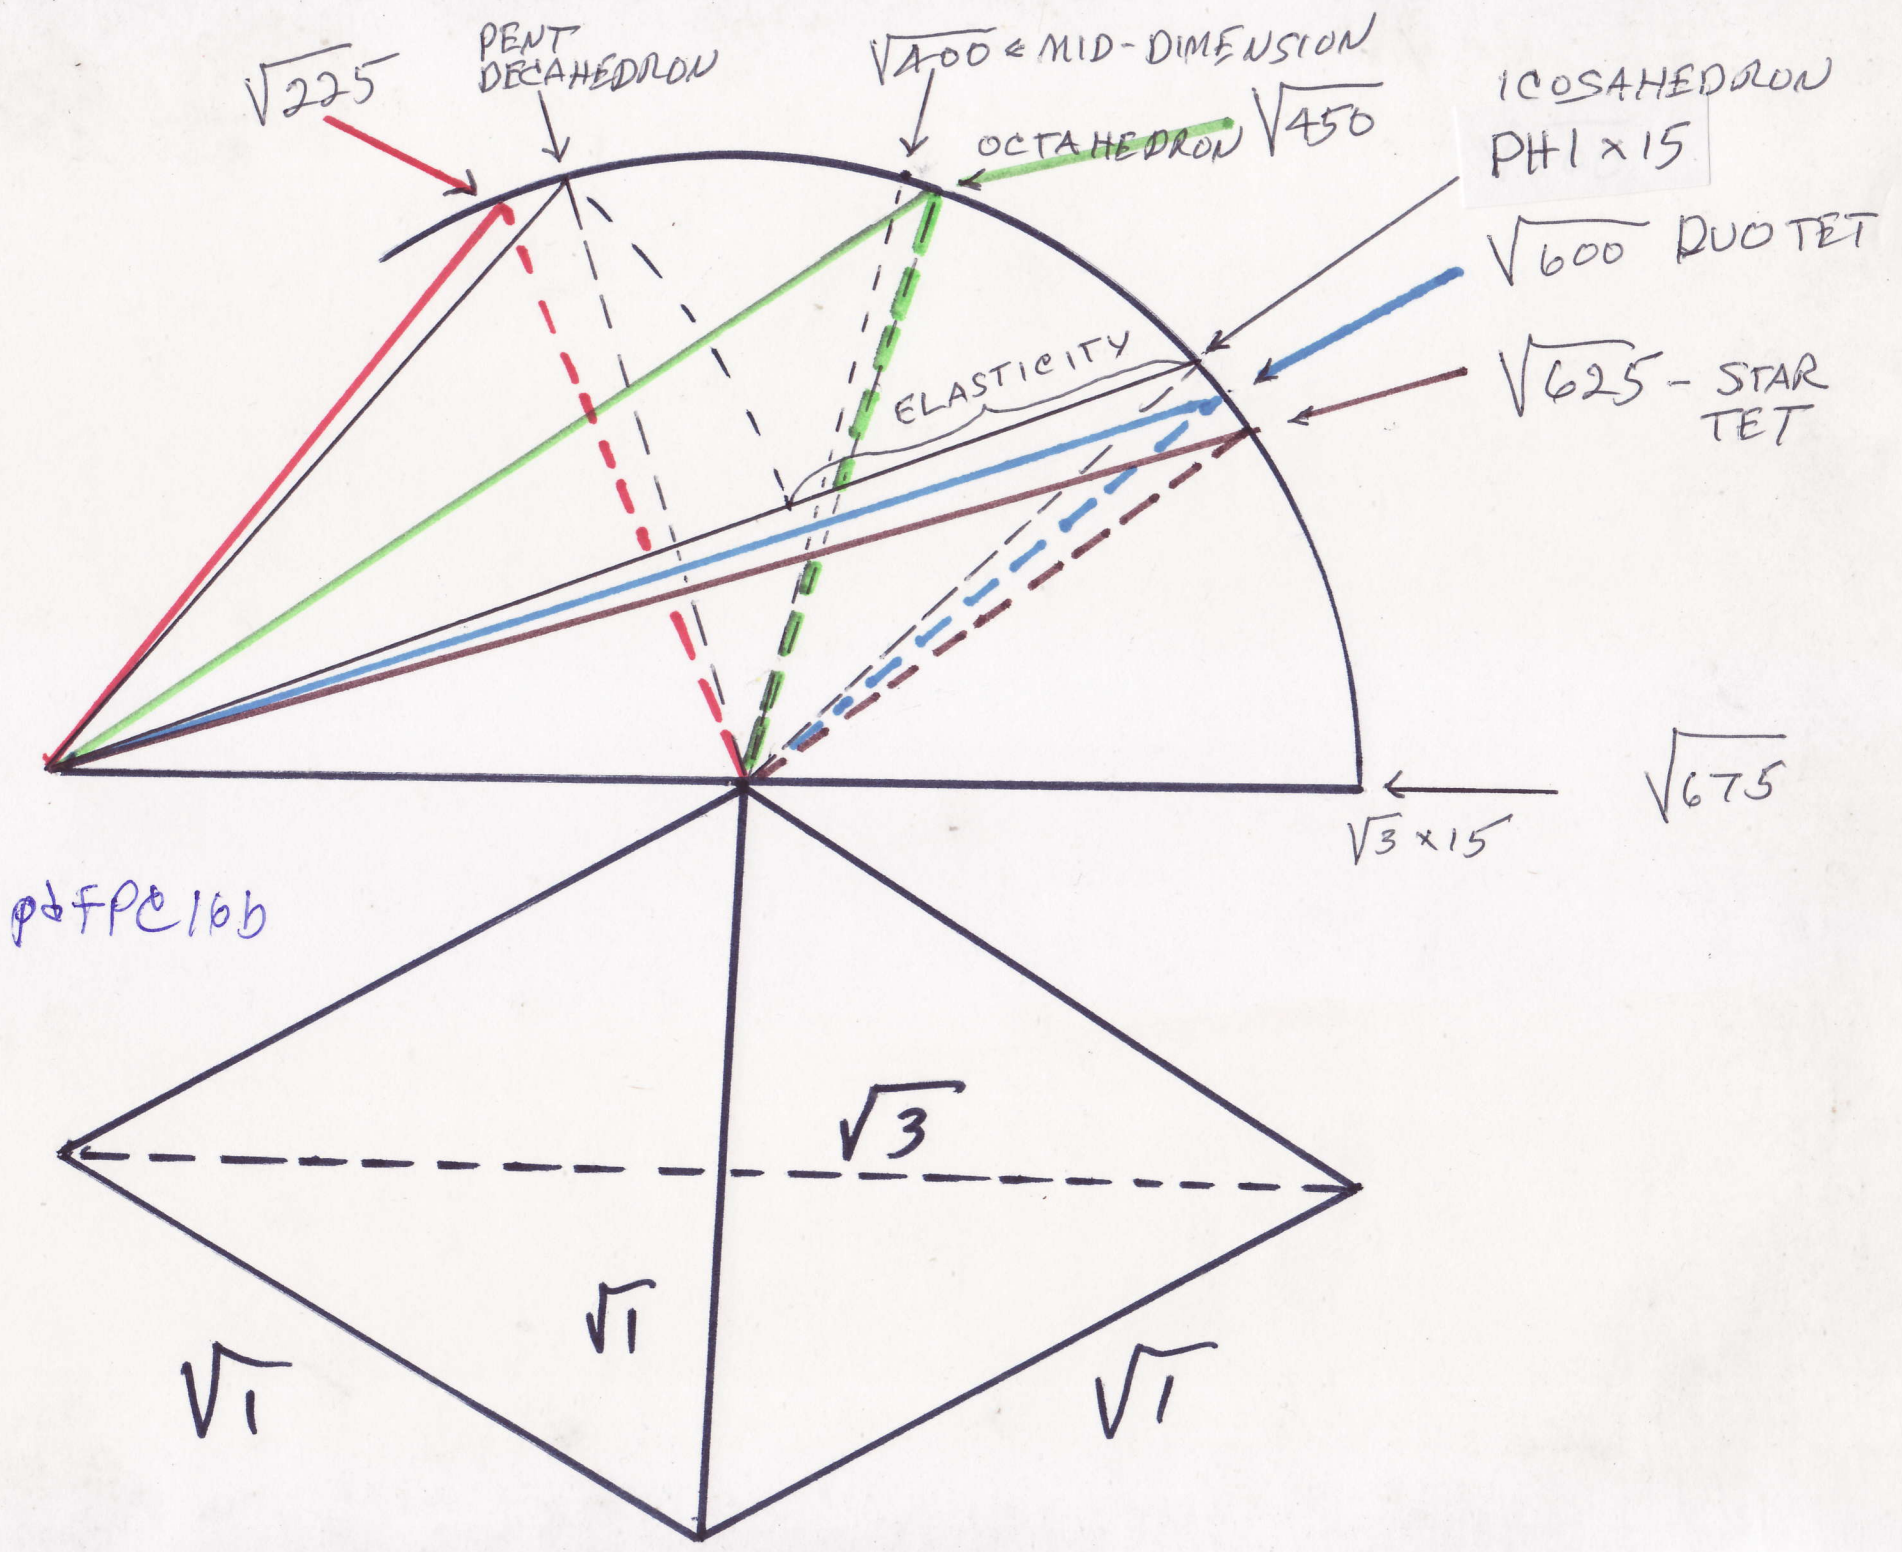 √225
PENT
DECAHEDRON
√400 < MID-DIMENSION
OCTAHEDRON √450
ICOSAHEDRON
PHI x 15
√600 DUO TET
√625 - STAR
TET
ELASTICITY
√675
√3 x 15
pdFPC16b
√3
√1
√1
√1